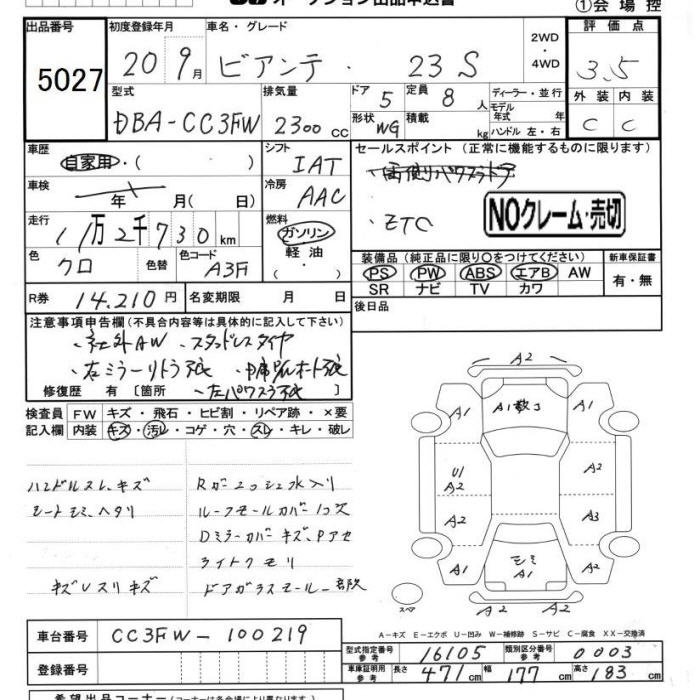 オークション出品申込書
①会場控
出品番号
5027
初度登録年月
20 9月
車名・グレード
ビアンテ・23S
2WD・4WD
評価点
3.5
型式
DBA-CC3FW
排気量
2300cc
ドア
5
定員
8人
形状
WG
積載
kg
ディーラー・並行
モデル年式 年
ハンドル 左・右
外装 内装
C C
車歴
自家用・( )
シフト
IAT
セールスポイント (正常に機能するものに限ります)
車検
年 月( 日)
冷房
AAC
・ETC
NOクレーム・売切
走行
11万2千730km
燃料
ガソリン
軽油
( ・ )
色
クロ
色替
色コード
A3F
装備品 (純正品に限り〇をつけてください)
PS PW ABS エアB AW
SR ナビ TV カワ
新車保証書
有・無
R券
14,210円
名変期限 月 日
後日品
注意事項申告欄 (不具合内容等は具体的に記入して下さい)
・社外AW ・スタッドレスタイヤ
・左ミラーリトラ不良
修復歴 有 [箇所 ・左パワスラ不良 ]
検査員 FW キズ・飛石・ヒビ割・リペア跡・×要
記入欄 内装 キズ・汚レ・コゲ・穴・スレ・キレ・破レ
ハンドルスレ、キズ
シートシミ、ヘタリ
キズUスリキズ
ルーフモールカバー1コ欠
Dミラーカバーキズ、Pアセ
ライトクモリ
A2
A1 A1散コ A1
U1 A2 A2
A2 A3
A1 シミ A1 A1
A2 A2
スペア
A-キズ E-エクボ U-凹み W-補修跡 S-サビ C-腐食 XX-交換済
車台番号
CC3FW-100219
登録番号
型式指定番号 16105 類別区分番号 0003
車庫証明用参考 長さ 471cm 幅 177cm 高さ 183cm
希望出品コーナー